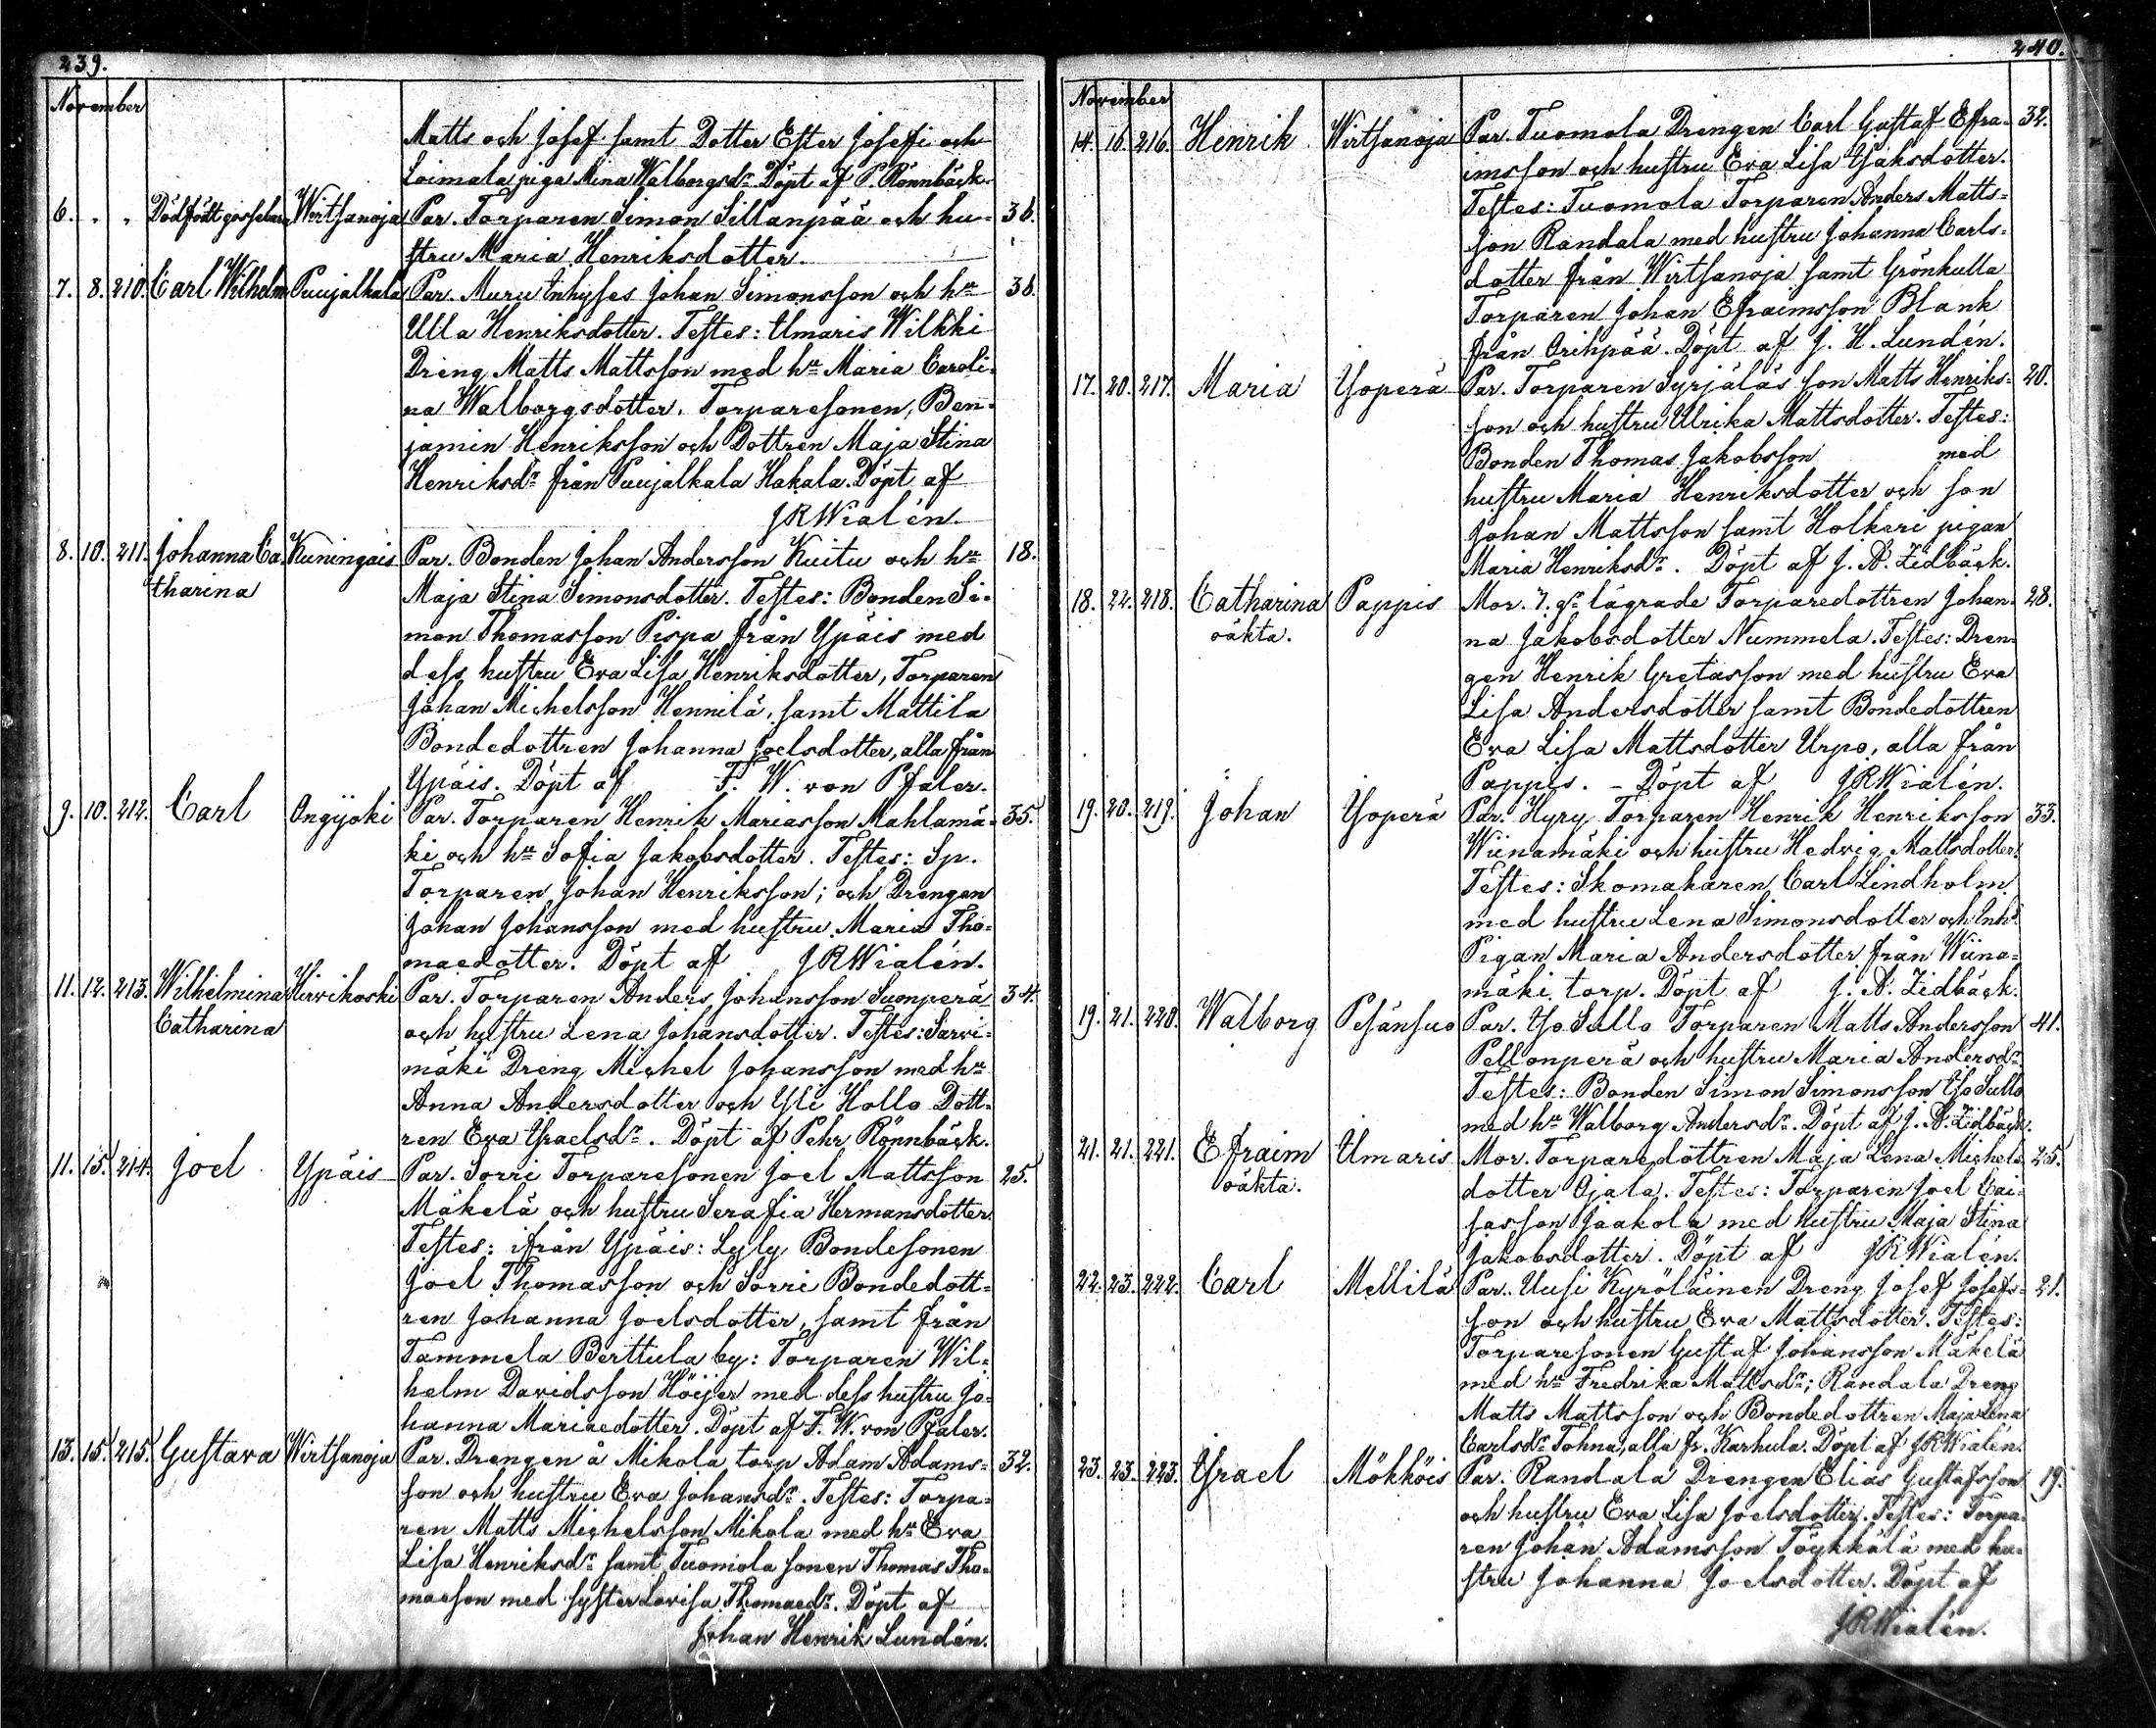 239.
November
Matts och Josef samt Dotter Ester Josefi och
Loimala piga Mina Walborgsdr Döpt af P. Rönnbäck.
6. " " Dödfödt gossebarn Wirtsanoja Par. Torparen Simon Sillanpää och hu- 36.
stru Maria Henriksdotter.
7. 8. 210. Carl Wilhelm Puujalkala Par. Muru Inhyses Johan Simonsson och hu 36.
Ulla Henriksdotter. Testes: Umaris Wilkki
Dreng Matts Mattsson med hu Maria Caroli-
na Walborgsdotter. Torparesonen, Ben-
jamin Henriksson och Dottren Maja Stina
Henriksdr från Puujalkala Hakala. Döpt af
JRWialén.
8. 10. 211. Johanna Ca- Kuningais Par. Bonden Johan Andersson Kuitu och hu 18.
tharina Maja Stina Simonsdotter. Testes: Bonden Si-
mon Thomasson Pispa från Ypäis med
dess hustru Eva Lisa Henriksdotter, Torparen
Johan Michelsson Hennilä, samt Mattila
Bondedottren Johanna Joelsdotter, alla från
Ypäis. Döpt af F. W. von Pfaler.
9. 10. 212. Carl Ongijoki Par. Torparen Henrik Mariasson Mahlamä- 35.
ki och hu Sofia Jakobsdotter. Testes: Sp.
Torparen Johan Henriksson; och Drengen
Johan Johansson med hustru Maria Tho-
maedotter. Döpt af JRWialén.
11. 12. 213. Wilhelmina Hirvikoski Par. Torparen Anders Johansson Suonperä 34.
Catharina och hustru Lena Johansdotter. Testes: Sarvi-
mäki Dreng Michel Johansson med hu
Anna Andersdotter och Yli Hollo Dott-
ren Eva Israelsdr. Döpt af Pehr Rönnbäck.
11. 15. 214. Joel Ypäis Par. Sorri Torparesonen Joel Mattsson 25.
Mäkelä och hustru Serafia Hermansdotter.
Testes: ifrån Ypäis: Lyly Bondesonen
Joel Thomasson och Sorri Bondedott-
ren Johanna Joelsdotter, samt från
Tammela Berttula by: Torparen Wil-
helm Davidsson Höijer med dess hustru Jo-
hanna Mariaedotter. Döpt af F. W. von Pfaler.
13. 15. 215. Gustava Wirtsanoja Par. Drengen å Mikola torp Adam Adams- 32.
son och hustru Eva Johansdr. Testes: Torpa-
ren Matts Michelsson Mikola med hu Eva
Lisa Henriksdr samt Tuomola sonen Thomas Tho-
maeson med syster Lovisa Thomaedr. Döpt af
Johan Henrik Lundén.
240.
November
14. 16. 216. Henrik Wirtsanoja Par. Tuomola Drengen Carl Gustaf Efra- 32.
imsson och hustru Eva Lisa Isaksdotter.
Testes: Tuomola Torparen Anders Matts-
son Randala med hustru Johanna Carls-
dotter från Wirtsanoja samt Grönkulla
Torparen Johan Efraimsson Blank
från Orihpää. Döpt af J. H. Lundén.
17. 20. 217. Maria Yoperä Par. Torparen Syrjäläs son Matts Henriks- 20.
son och hustru Ulrika Mattsdotter. Testes:
Bonden Thomas Jakobsson med
hustru Maria Henriksdotter och son
Johan Mattsson samt Holkeri pigan
Maria Henriksdr. Döpt af J. A. Zidbäck.
18. 22. 218. Catharina Pappis Mor. 7. gr lägrade Torparedottren Johan- 28.
oäkta. na Jakobsdotter Nummela. Testes: Dren-
gen Henrik Gretasson med hustru Eva
Lisa Andersdotter samt Bondedottren
Eva Lisa Mattsdotter Urpo, alla från
Pappis. - Döpt af JRWialén.
19. 20. 219. Johan Yoperä Par. Hyry Torparen Henrik Henriksson 33.
Wiinamäki och hustru Hedvig Mattsdotter.
Testes: Skomakaren Carl Lindholm
med hustru Lena Simonsdotter och Inhs
Pigan Maria Andersdotter från Wiina-
mäki torp. Döpt af J. A. Zidbäck.
19. 21. 220. Walborg Pesänsuo Par. Iso Sullo Torparen Matts Andersson 41.
Pellonperä och hustru Maria Andersdr
Testes: Bonden Simon Simonsson Iso Sullo
med hu Walborg Andersdr. Döpt af J. A. Zidbäck.
21. 21. 221. Efraim Umaris Mor. Torparedottren Maja Lena Michels- 25.
oäkta. dotter Ojala. Testes: Torparen Joel Cai-
sasson Jaakola med hustru Maja Stina
Jakobsdotter. Döpt af JRWialén.
22. 23. 222. Carl Mellilä Par. Uusi Kyröläinen Dreng Josef Josefs- 21.
son och hustru Eva Mattsdotter. Testes:
Torparesonen Gustaf Johansson Mäkelä
med hu Fredrika Mattsdr; Randala Dreng
Matts Mattsson och Bondedottren Maja Lena
Carlsdr Tohna, alla fr. Karhula. Döpt af JRWialén.
23. 23. 223. Israel Mökköis Par. Randala Drengen Elias Gustafsson 19.
och hustru Eva Lisa Joelsdotter. Testes: Torpa-
ren Johan Adamsson Töykkälä med hu-
stru Johanna Joelsdotter. Döpt af
JRWialén.